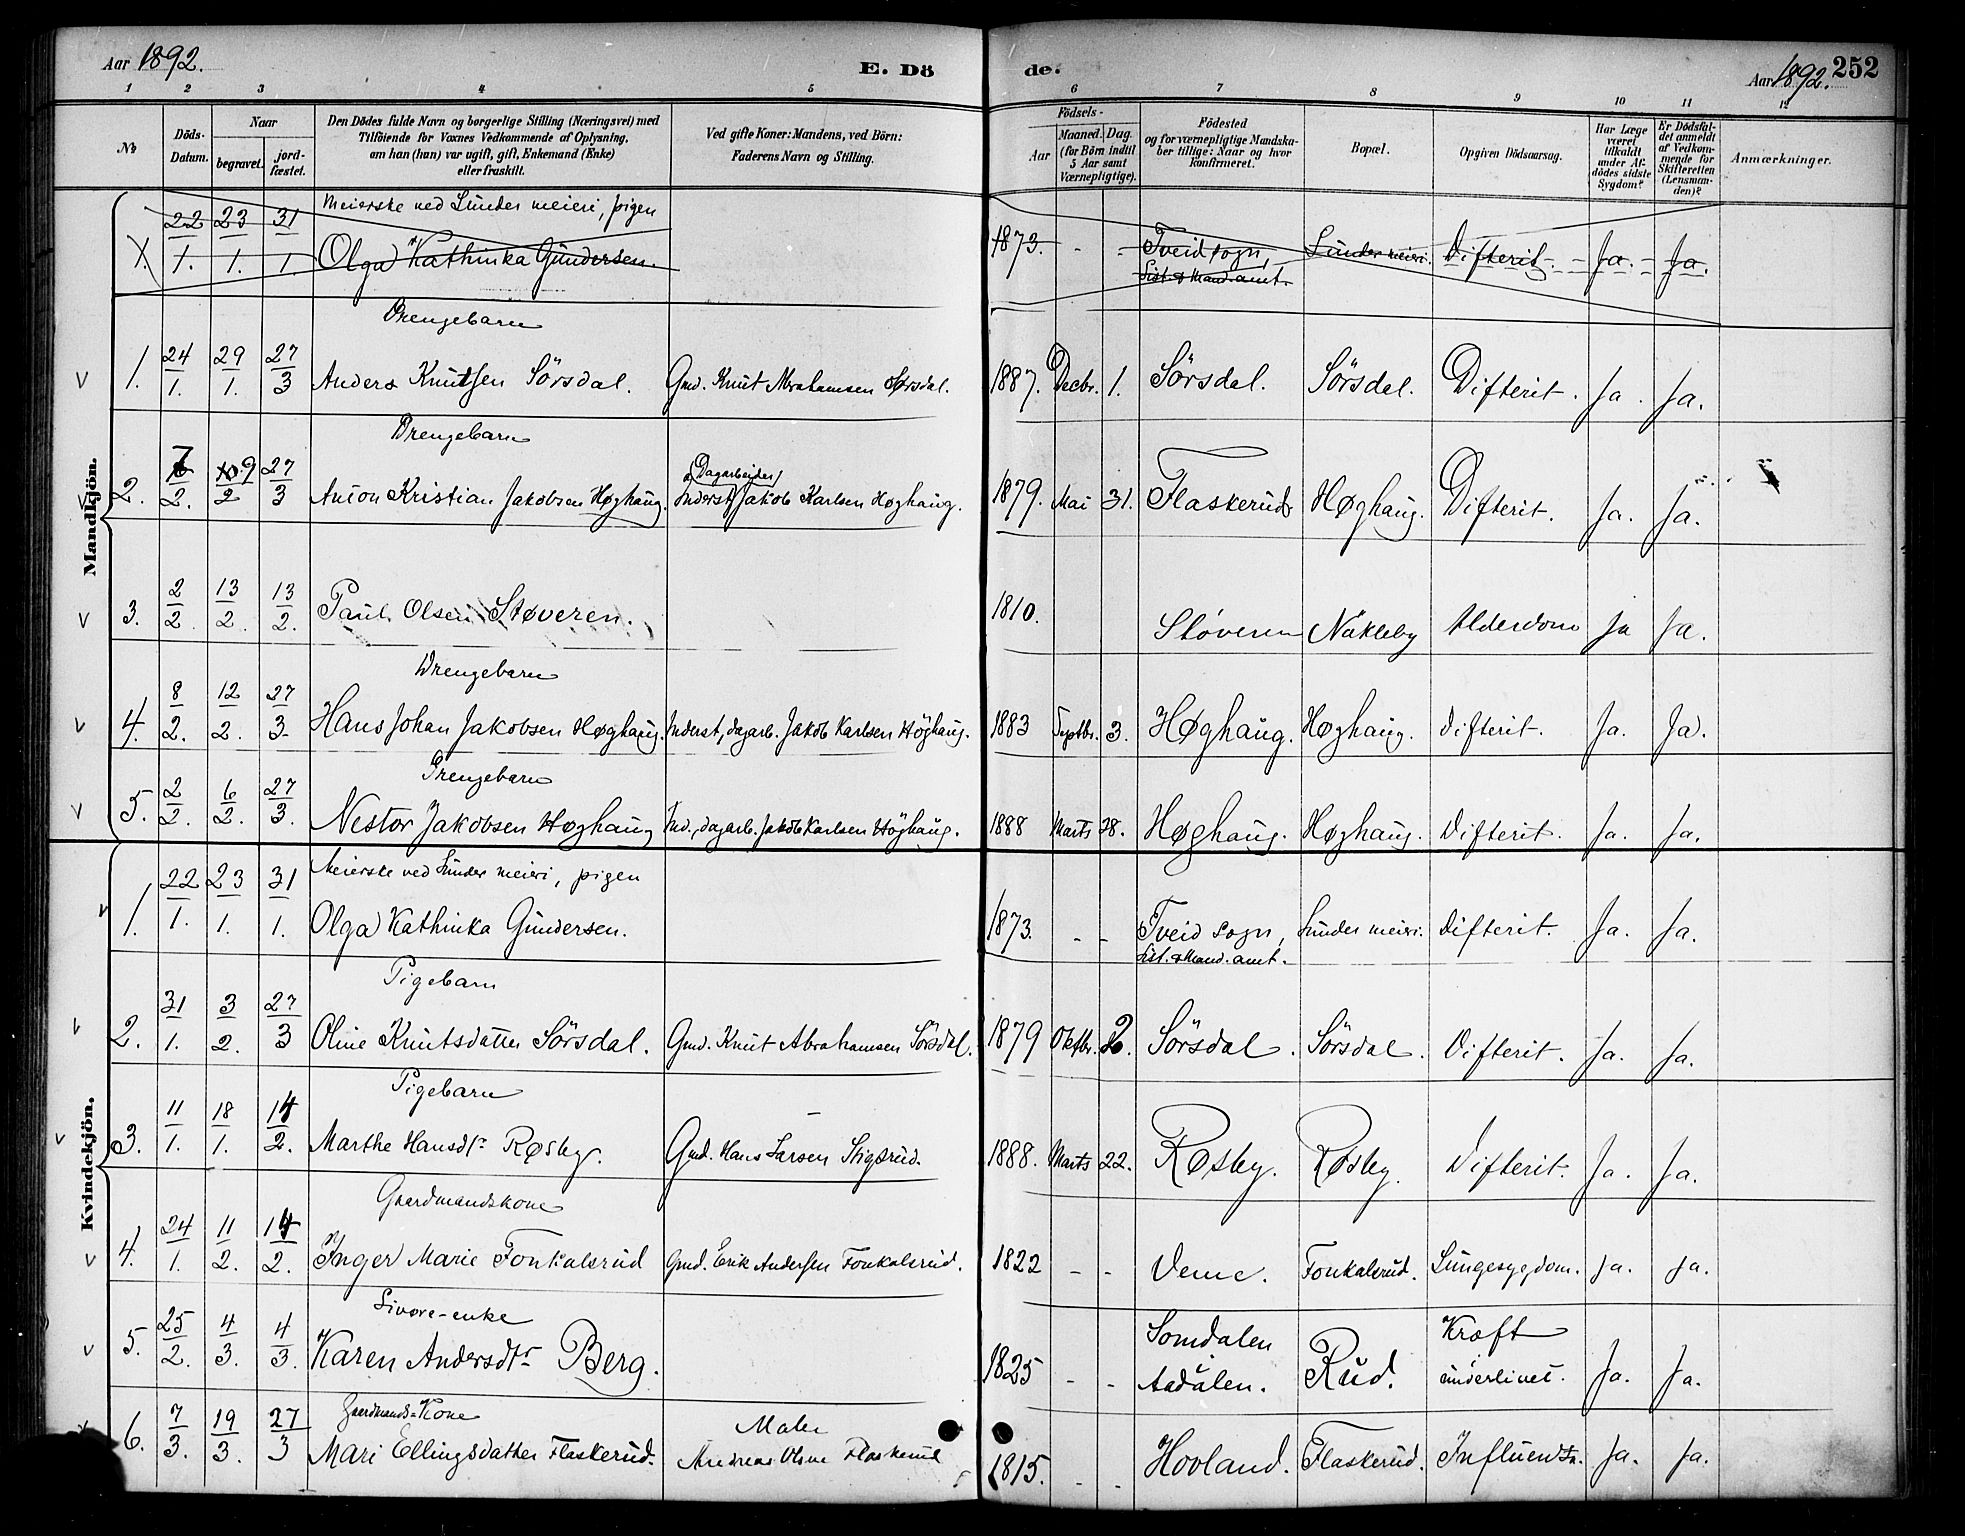 Aar 1892. E. Dö de. Aar 1892. 252
1 2 3 4 5 6 7 8 9 10 11 12
№
Döds-Datum.
Naar
begravet.
jord-fæstet.
Den Dödes fulde Navn og borgerlige Stilling (Næringsvei) med
Tilföiende for Voxnes Vedkommende af Oplysning,
om han (hun) var ugift, gift, Enkemand (Enke)
eller fraskilt.
Ved gifte Koner: Mandens, ved Börn:
Faderens Navn og Stilling.
Födsels-
Aar
Maaned. Dag.
(for Börn indtil
5 Aar samt
Værnepligtige).
Födested
og for værnepligtige Mandska-
ber tillige: Naar og hvor
konfirmeret.
Bopæl.
Opgiven Dödsaarsag.
Har Læge
været
tilkaldt
under Af-
dödes sidste
Sygdom?
Er Dödsfal-
det anmeldt
af Vedkom-
mende for
Skifteretten
(Lensman-
den)?
Anmærkninger.
Mandkjön.
Meierske ved Lunder meieri, pigen
1. 22/1. 23/1. 31/1. Olga Kathinka Gundersen. 1873. - - Tveid sogn, Lunder meieri. Difterit. - Ja. - Ja.
List. & Mand. amt.
Drengebarn
1. 24/1. 29/1. 27/3 Anders Knutsen Sörsdal. Gmd. Knut Abrahamsen Sørsdal. 1887. Decbr. 1. Sörsdal. Sörsdal. Difterit. Ja. Ja.
Drengebarn
Dagarbeider
2. 7/2. 9/2 27/3 Anton Kristian Jakobsen Høghaug. Inderst, Jakob Karlsen Høghaug. 1879. Mai 31. Flaskerud Høghaug. Difterit. Ja. Ja.
3. 2/2 13/2 13/2. Paul Olsen Støveren. 1810. Støveren Nakleby Alderdom Ja Ja.
Drengebarn
4. 8/2. 12/2. 27/3. Hans Johan Jakobsen Høghaug. Inderst, dagarb. Jakob Karlsen Höghaug. 1883 Septbr. 3. Høghaug. Høghaug. Difterit. Ja. Ja.
Drengebarn
5. 2/2. 6/2. 27/3. Nestor Jakobsen Høghaug Ind., dagarb. Jakob Karlsen Höghaug. 1888 Marts 28. Høghaug. Høghaug. Difterit. Ja. Ja.
Kvindekjön.
Meierske ved Lunder meieri, pigen
1. 22/1. 23/1. 31/1. Olga Kathinka Gundersen. 1873. - - Tveid sogn, Lunder meieri. Difterit. Ja. Ja.
List. & Mand. amt.
Pigebarn
2. 31/1. 3/2. 27/3 Oline Knutsdatter Sörsdal. Gmd. Knut Abrahamsen Sörsdal. 1879 Oktbr. 2. Sörsdal. Sörsdal. Difterit. Ja. Ja.
Pigebarn
3. 11/1. 18/1. 14/2. Marthe Hansdtr Røsby. Gmd. Hans Larsen Stigsrud. 1888. Marts 22. Røsby. Røsby. Difterit. Ja. Ja.
Gaardmandskone
4. 24/1. 11/2. 14/2. Inger Marie Fonkalsrud Gmd. Erik Andersen Fonkalsrud. 1822 - - Veme. Fonkalsrud. Lungesygdom. Ja. Ja.
Livøre-enke
5. 25/2. 4/3. 4/3. Karen Andersdtr Berg. 1825 - - Somdalen Aadalen. Rud. Kræft underlivet. Ja. Ja.
Gaardmands-Kone Maler
6. 7/3. 19/3. 27/3 Mari Ellingsdatter Flaskerud. Andreas Olsen Flaskerud 1815. - - Hovland. Flaskerud. Influentsa. Ja. Ja.